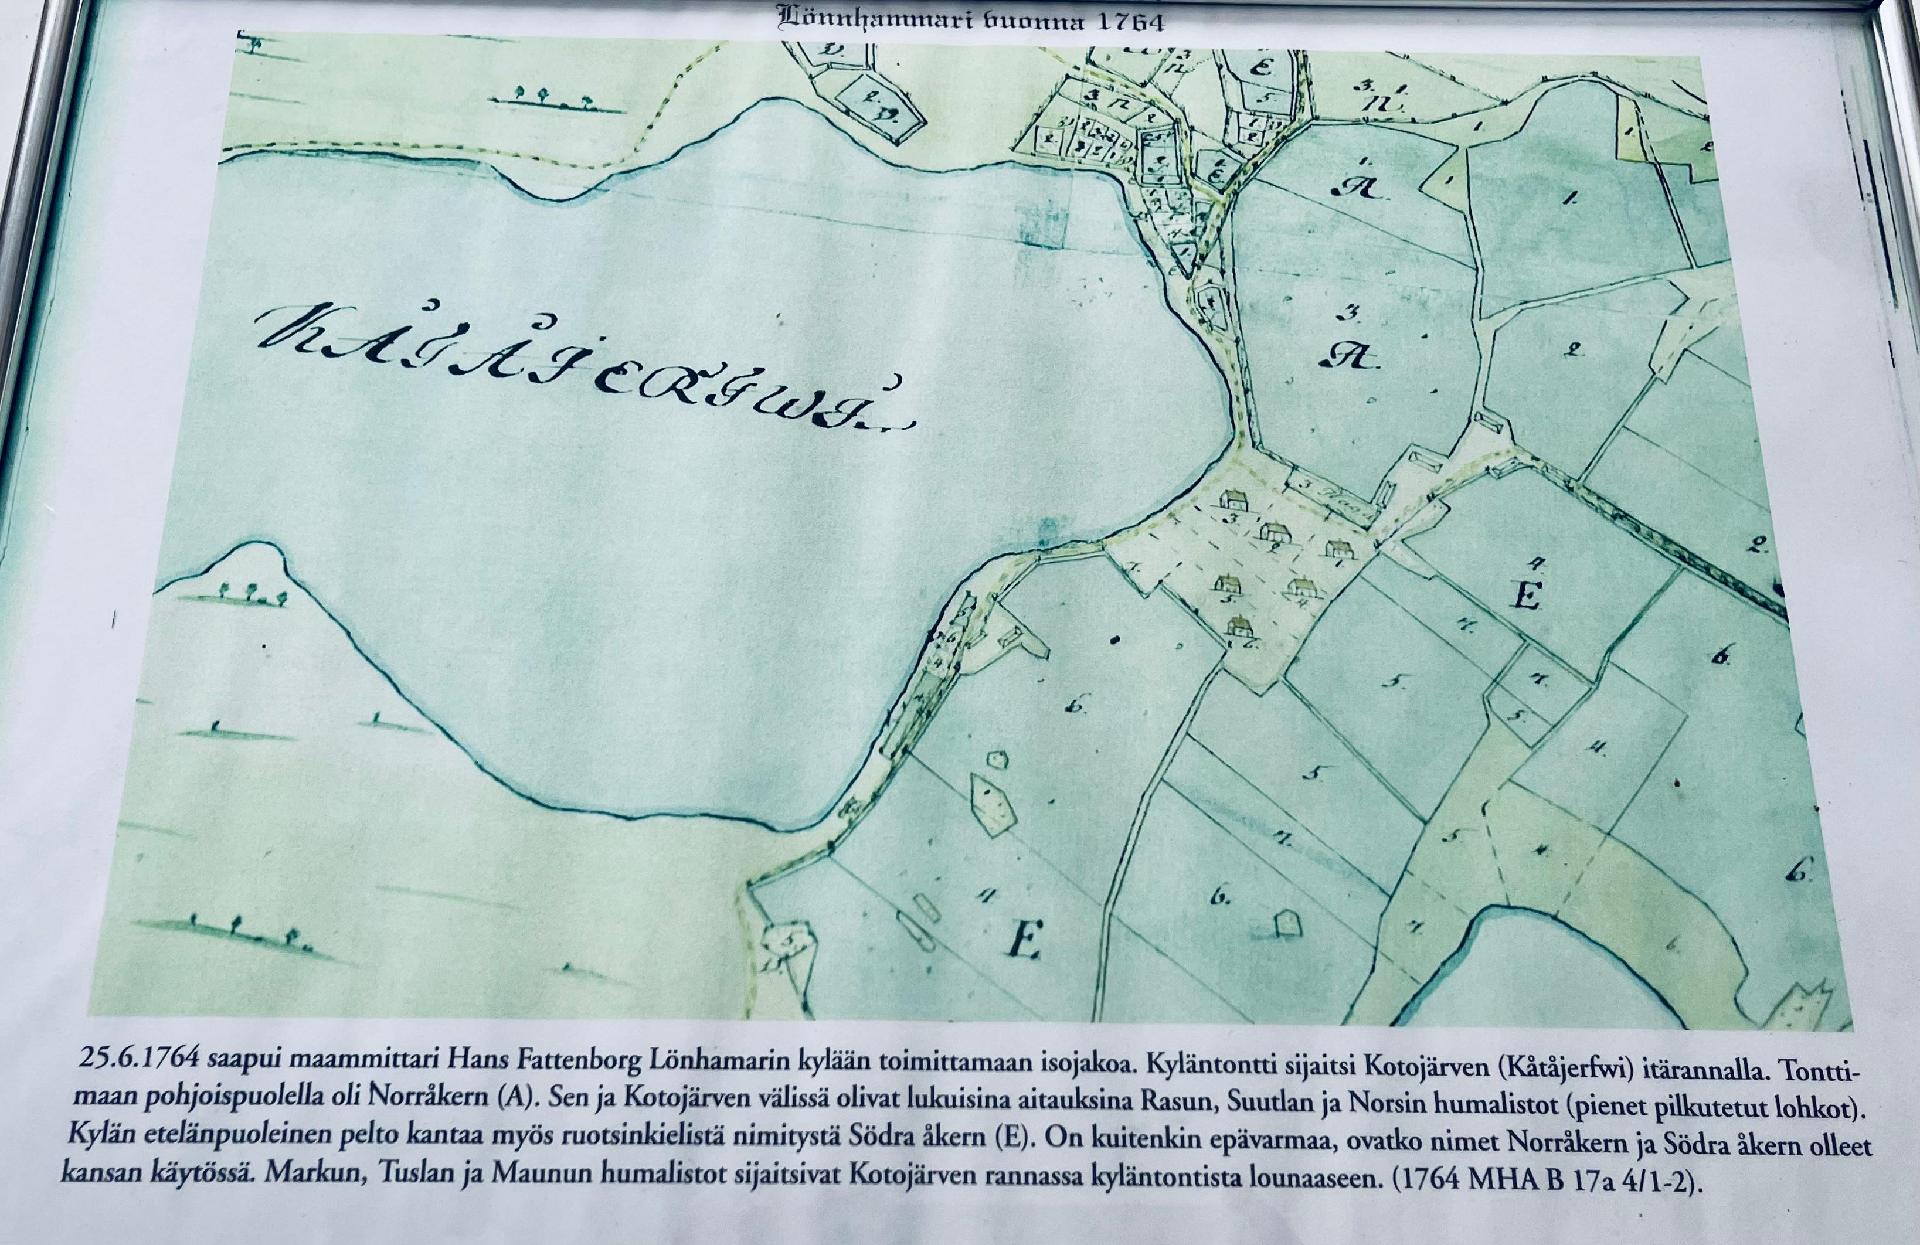 Lönnhammari vuonna 1764
KÅTÅJERFWI
2.
3. n
E
5.
3. 1.
n.
1.
A.
1.
1.
1.
3.
A.
2.
3.
2.
1.
5.
4.
6.
2.
4.
E
6.
5.
5.
4.
6.
5.
5.
6.
4
E
6.
6.
25.6.1764 saapui maammittari Hans Fattenborg Lönhamarin kylään toimittamaan isojakoa. Kyläntontti sijaitsi Kotojärven (Kåtåjerfwi) itärannalla. Tontti-
maan pohjoispuolella oli Norråkern (A). Sen ja Kotojärven välissä olivat lukuisina aitauksina Rasun, Suutlan ja Norsin humalistot (pienet pilkutetut lohkot).
Kylän etelänpuoleinen pelto kantaa myös ruotsinkielistä nimitystä Södra åkern (E). On kuitenkin epävarmaa, ovatko nimet Norråkern ja Södra åkern olleet
kansan käytössä. Markun, Tuslan ja Maunun humalistot sijaitsivat Kotojärven rannassa kyläntontista lounaaseen. (1764 MHA B 17a 4/1-2).